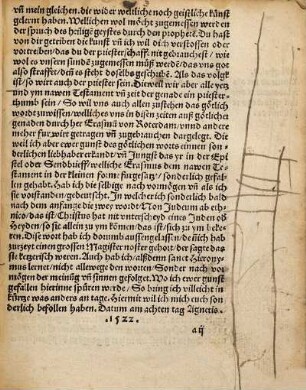 vñ meyden. die wider weltliche noch geistliche künst
gelernt haben. Wellichen wol möcht zugemessen werden
der spruch des heilige geystes durch den propheten. Du hast
von dir getriben die kunst vñ ich wil dich verstossen oder
vortreiben / das du der priesterschafft nit gebrauchest / wie
wol es vnsern sünden zugemessen müß werdē / das vns got
also straffet / dañ es steht doselbs geschribē. Als das volgk
ist / so wirt auch der priester sein. Dieweil wir aber alle yetz
und ym nawen Testament vß zeit der genade ein priester-
thumb sein / So wil vns auch allen zustehen das götlich
wordt zuwissen / welliches vns in disen zeiten auß götlicher
genaden durch her Erasmū von Roterdam / vnnd andere
mehr fur wirt getragen vñ zugebrauchen dargelegt. Die
weil ich aber ewer gunst des götlichen worts einnen son-
derlichen liebhaber erkandt / vñ Jungst das yr in der Epi-
stel oder Sendbrieff welliche Erasmus dem nawen Te-
stament in der kleinen form fürgesatzt / sonderlich gefal-
len gehabt. Hab ich die selbige nach vormögen vñ als ich
sie vorstanden / gedeutscht. In welcher ich sonderlich bald
nach dem anfange die zwey wort. Non Iudeum ab eth-
nico / das ist / Christus hat nit vnterscheyd eines Juden oder
Heyden / so sie allein zu ym kōmen / das ist / sich zu ym beke-
ren. Dise wort hab ich dorumb aussengelassen / dz ich hab
vor zeyt einen grossen Magister noster gehort / der sagte das
sie ketzerisch weren. Auch hab ich / als dem sanct Hierony-
mus lernet / nicht allewege den worten / Sonder nach vor-
mögen der meinūg vñ sinnen gefolget. Wo ich ewer gunst
gefallen hierinne spüren würde / So bring ich villeicht in
kürtze was anders an tage. Hiermit wil ich mich euch son-
derlich befollen haben. Datum am achten tag Agnetis.
.1522.
a ij